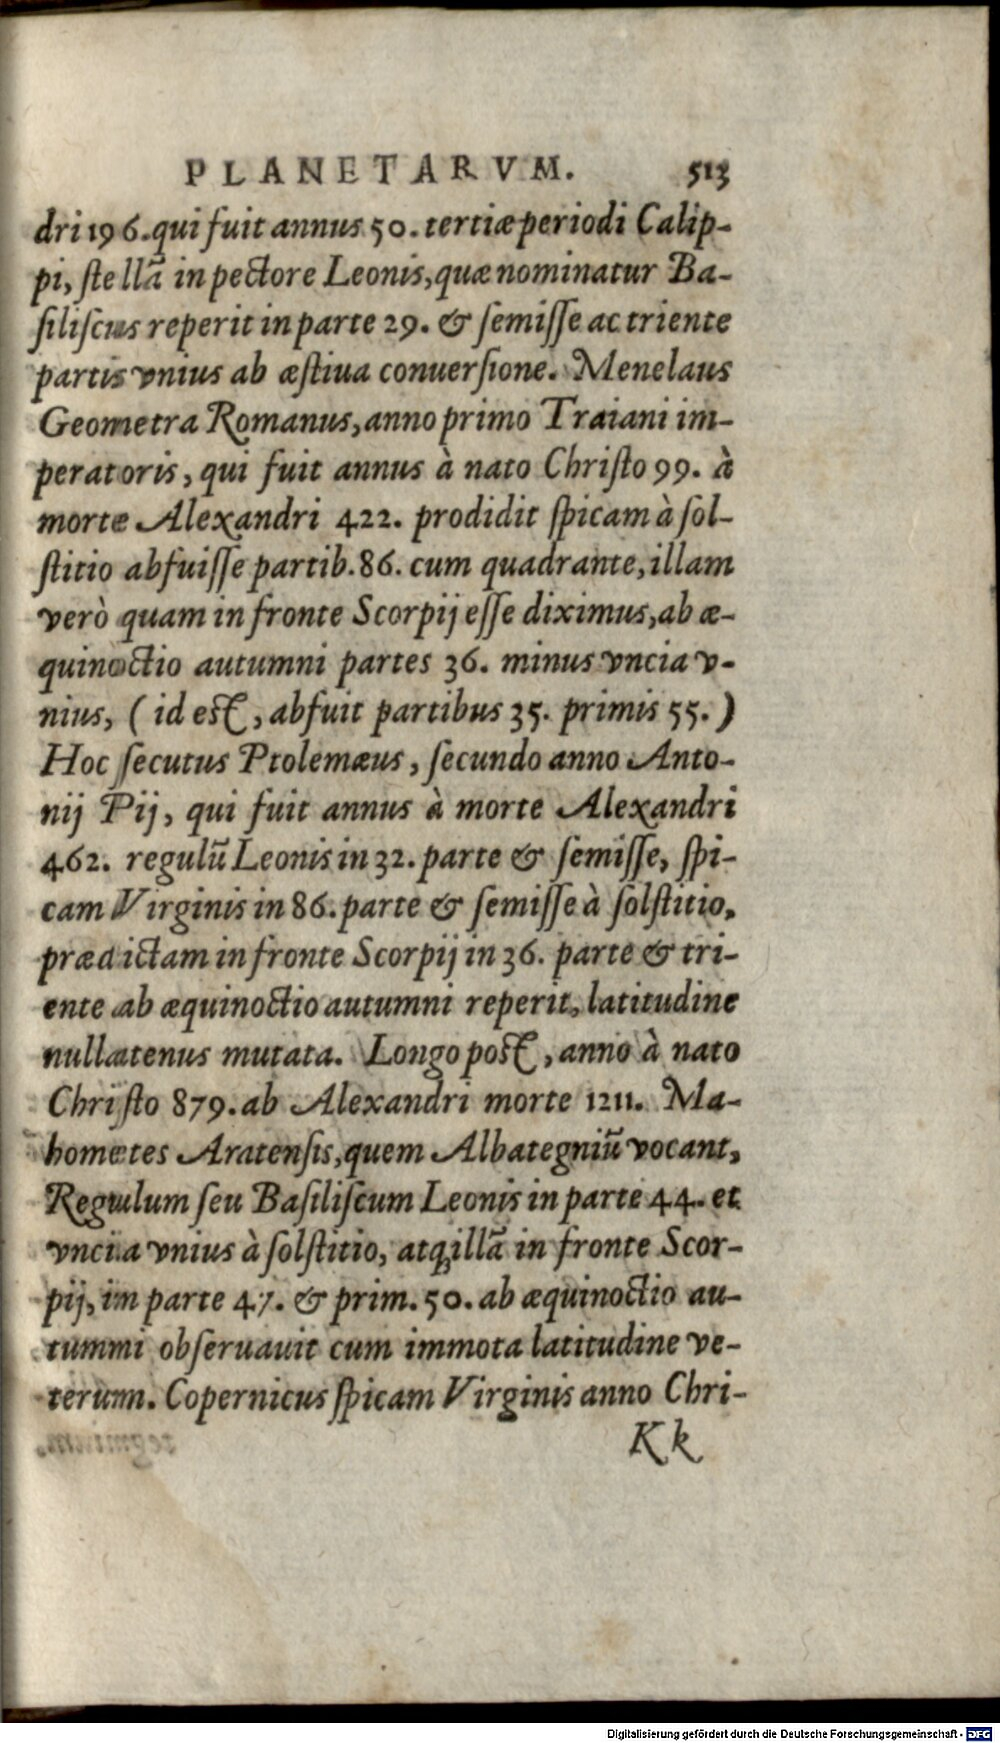 PLANETARVM. 513
dri 196. qui fuit annus 50. tertiæ periodi Calip-
pi, stellā in pectore Leonis, quæ nominatur Ba-
siliscus reperit in parte 29. & semisse ac triente
partis vnius ab æstiua conuersione. Menelaus
Geometra Romanus, anno primo Traiani im-
peratoris, qui fuit annus à nato Christo 99. à
morte Alexandri 422. prodidit spicam à sol-
stitio abfuisse partib. 86. cum quadrante, illam
verò quam in fronte Scorpij esse diximus, ab æ-
quinoctio autumni partes 36. minus vncia v-
nius, (id est, abfuit partibus 35. primis 55.)
Hoc secutus Ptolemæus, secundo anno Anto-
nij Pij, qui fuit annus à morte Alexandri
462. regulū Leonis in 32. parte & semisse, spi-
cam Virginis in 86. parte & semisse à solstitio,
prædictam in fronte Scorpij in 36. parte & tri-
ente ab æquinoctio autumni reperit, latitudine
nullatenus mutata. Longo post, anno à nato
Christo 879. ab Alexandri morte 1211. Ma-
hometes Aratensis, quem Albategniū vocant,
Regulum seu Basiliscum Leonis in parte 44. et
vncia vnius à solstitio, atq; illā in fronte Scor-
pij, in parte 47. & prim. 50. ab æquinoctio au-
tumni obseruauit cum immota latitudine ve-
terum. Copernicus spicam Virginis anno Chri-
Kk
Digitalisierung gefördert durch die Deutsche Forschungsgemeinschaft - DFG